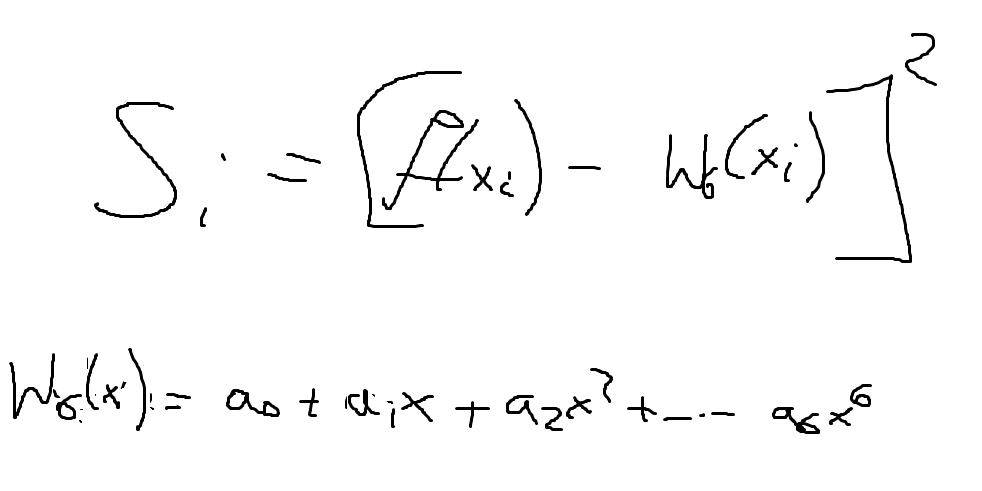 Sᵢ = [f(xᵢ) - W₆(xᵢ)]²
W₆(x) = a₀ + a₁x + a₂x² + ... a₆x⁶